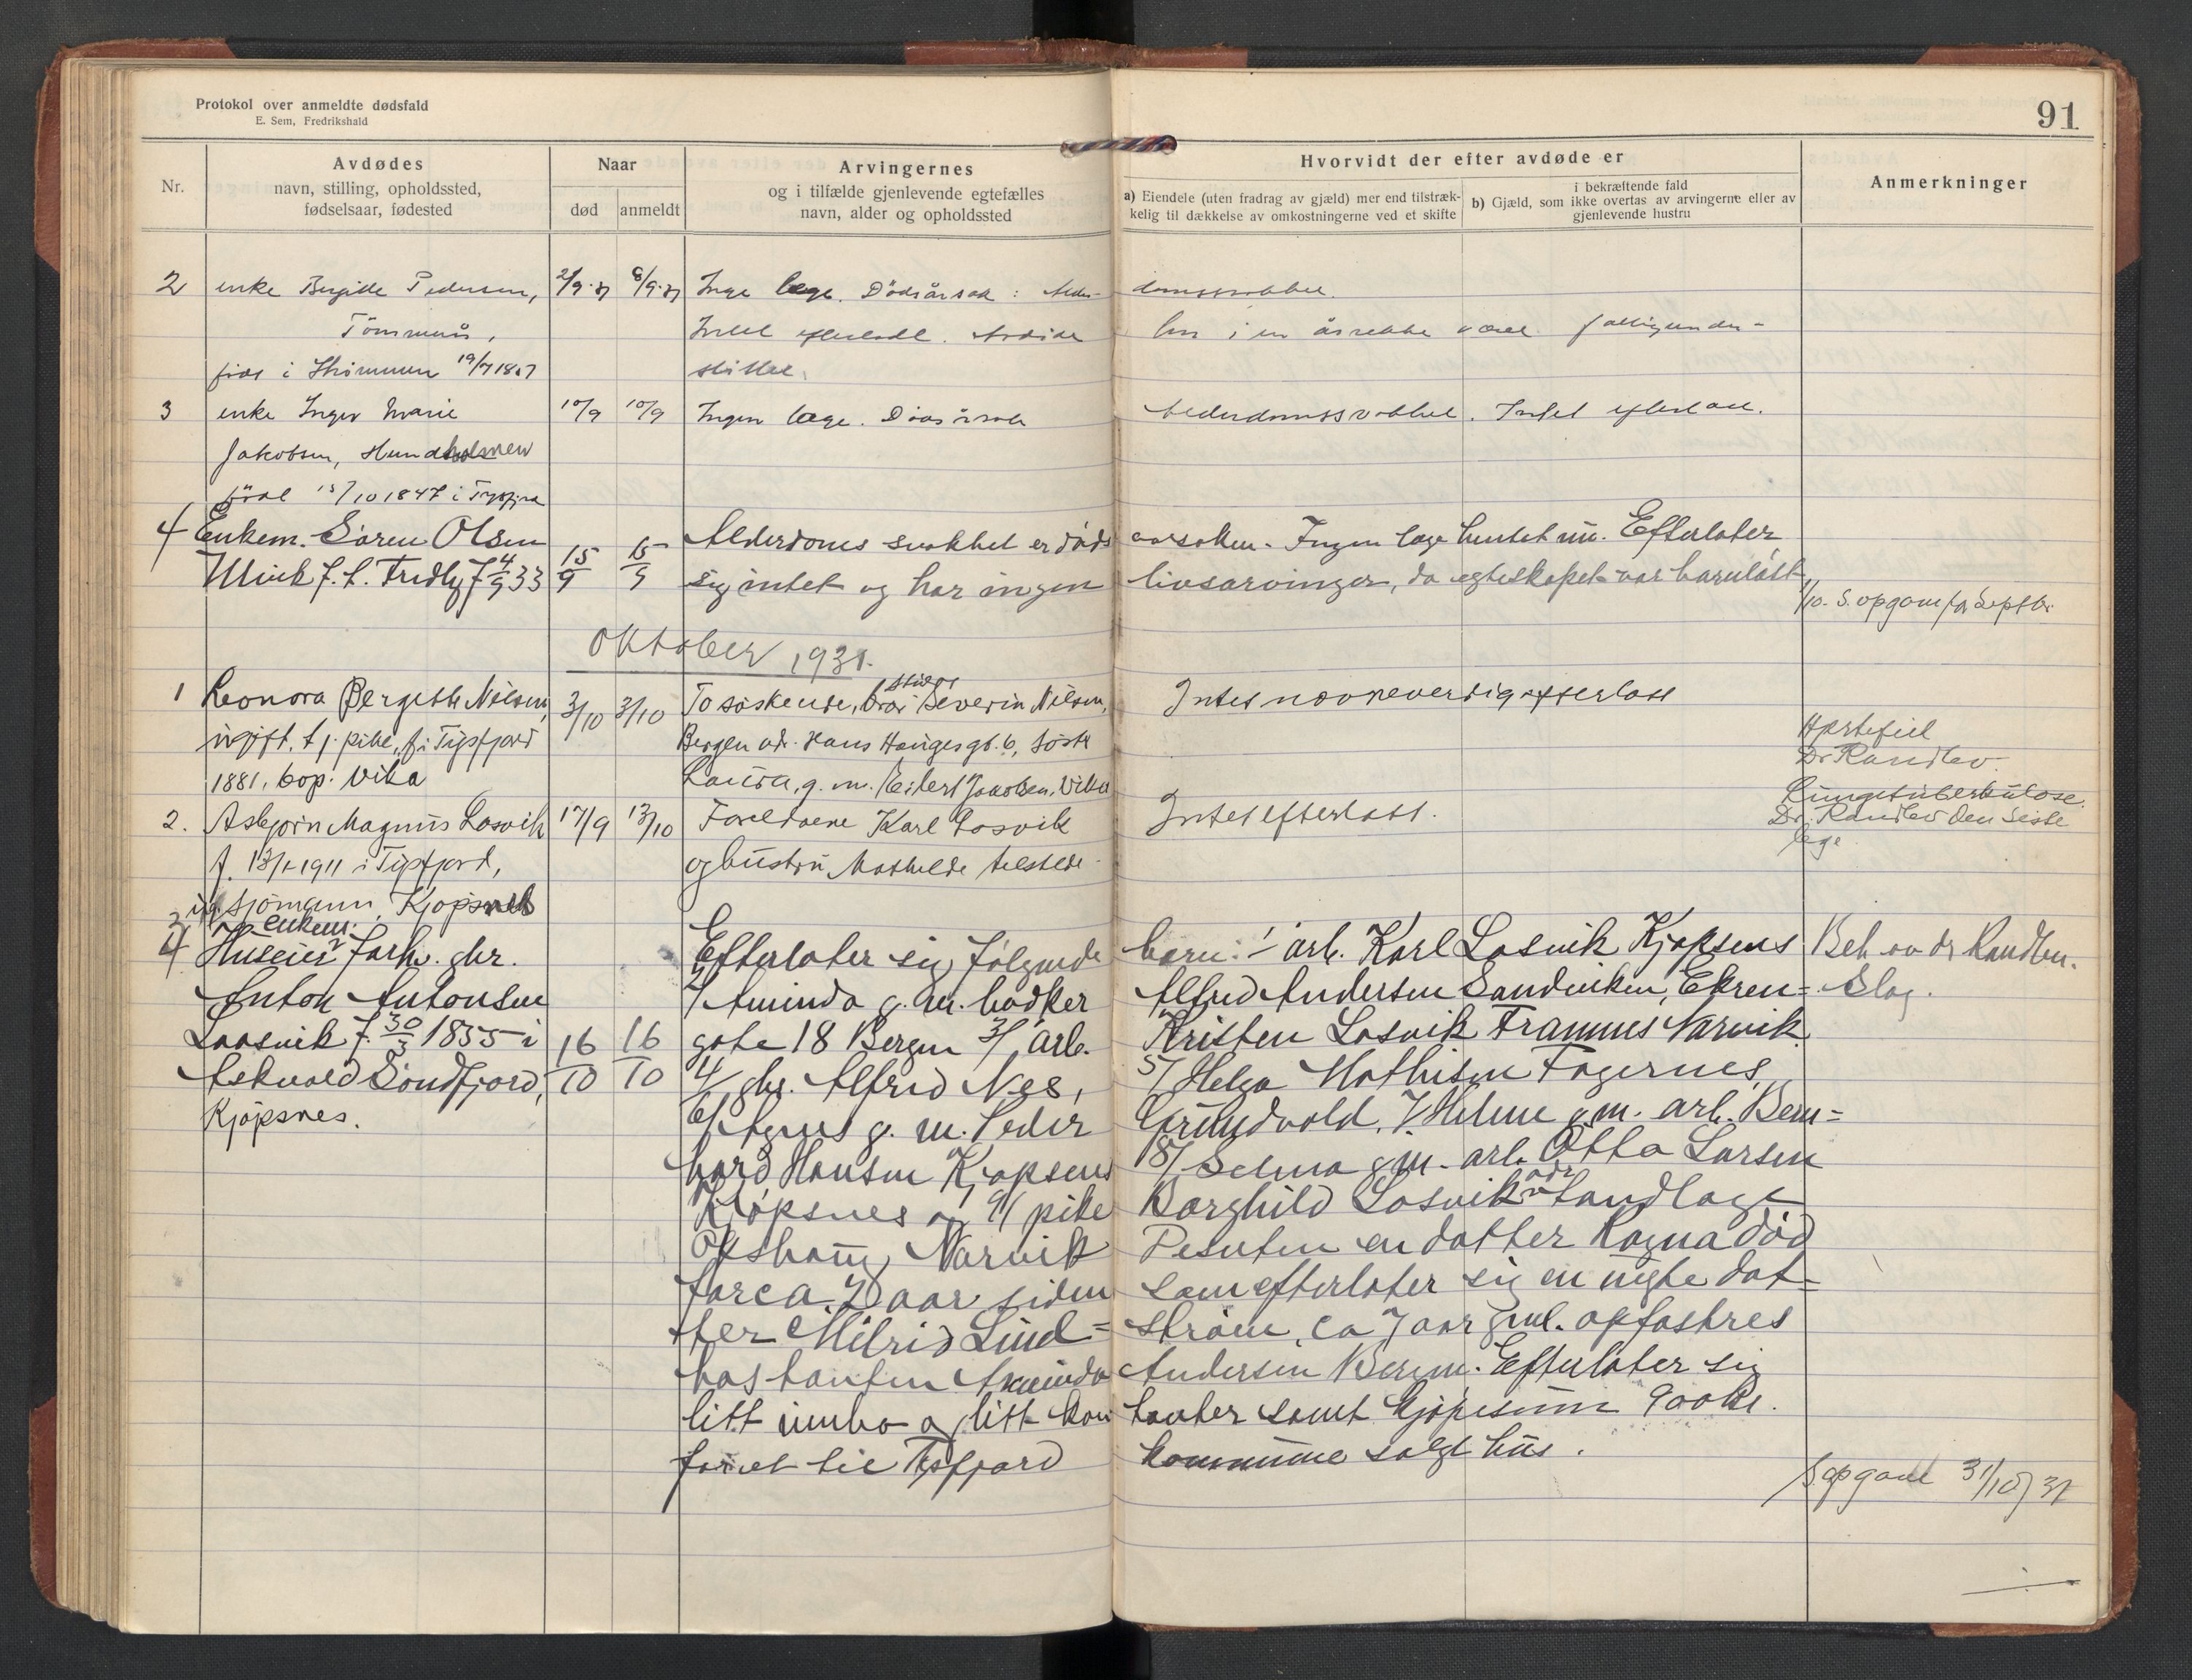 Protokol over anmeldte dødsfald
E. Sem, Fredrikshald
91
Nr.
Avdødes
navn, stilling, opholdssted,
fødselsaar, fødested
Naar
død
anmeldt
Arvingernes
og i tilfælde gjenlevende egtefælles
navn, alder og opholdssted
Hvorvidt der efter avdøde er
a) Eiendele (uten fradrag av gjæld) mer end tilstræk-
kelig til dækkelse av omkostningerne ved et skifte
i bekræftende fald
b) Gjæld, som ikke overtas av arvingerne eller av
gjenlevende hustru
Anmerkninger
2 enke Bergitte Pedersen, 2/9.31 8/9.31 Inge lege. Dödsårsak: Alder- domssvakhet.
Tömmerås, Intet efterladt. Avdöde har i en årrekke været fattigunder-
född i 19/7 1857 stöttet.
3 enke Inger Marie 10/9 10/9 Ingen læge. Dödsårsak Alderdomssvakhet. Intet efterlatt.
Jakobsen, Hundholmen
född 15/10 1847 i Tysfjord
4 Enkem. Sören Olsen 15/9 15/9 Alderdoms svakhet er döds aarsaken. Ingen læge hentet nu. Efterlater
Ulvik f. h. 4/9 33 sig intet og har ingen livsarvinger, da egteskapet var barnlöst
1/10. S. opgave for Septbr.
Oktober 1931.
1 Leonora Bergette Nilsen, 3/10 3/10 To söskende, bror Severin Nilsen, Intet nævneverdig efterlatt
ugift, tj. pike, f. i Tysfjord Bergen adr. Hans Haugesgt. 6, söster Hjertefeil
Dr Randlev.
1881, bop. Vika Laura, g. m. Eilert Jakobsen, Vika
2. Asbjörn Magnus Losvik 17/9 13/10 Foreldrene Karl Losvik Intet efterlatt. Lungetuberkulose.
Dr. Randlev den siste
lege
f. 13/1-1911 i Tysfjord, og hustru Mathilde tilstede.
ug. sjömann, Kjöpsnes
4 Huseier enkem. forh. gbr. Efterlater sig fölgende barn: 1/ arb. Karl Losvik Kjöpsnes Beh av dr Randlev.
Anton Antonsen 2/ Aminda g. m. bödker Alfred Andersen Sandviken, Ekren= Slag.
Losvik f. 30/3 1855 i 16/10 16/10 gate 18 Bergen 3/ arb. Kristen Losvik Framnes Narvik.
Askvold Söndfjord, 4/ gbr. Alfred Nes, 5/ Helga Mathisen Fagernes,
Kjöpsnes. 6/ Agnes g. m. Peder Grundvold, 7/ Helene g. m. arb. Bern=
hard Hansen Kjöpsnes 8/ Selma g. m. arb. Otto Larsen
Kjöpsnes og 9/ pike Borghild Losvik adr Sandlage
Narvik Desuten en datter Ragna död
for ca. 7 aar siden som efterlater sig en uegte dat=
ter Milrid Lind= ström, ca 7 aar gml. opfostres
hos tanten Aminda Andersen Bergen. Efterlater sig
litt innbo og litt kon tanter samt kjöpesum 900 kr.
for et til Tysfjord kommune solgt hus.
S opgave 31/10 31